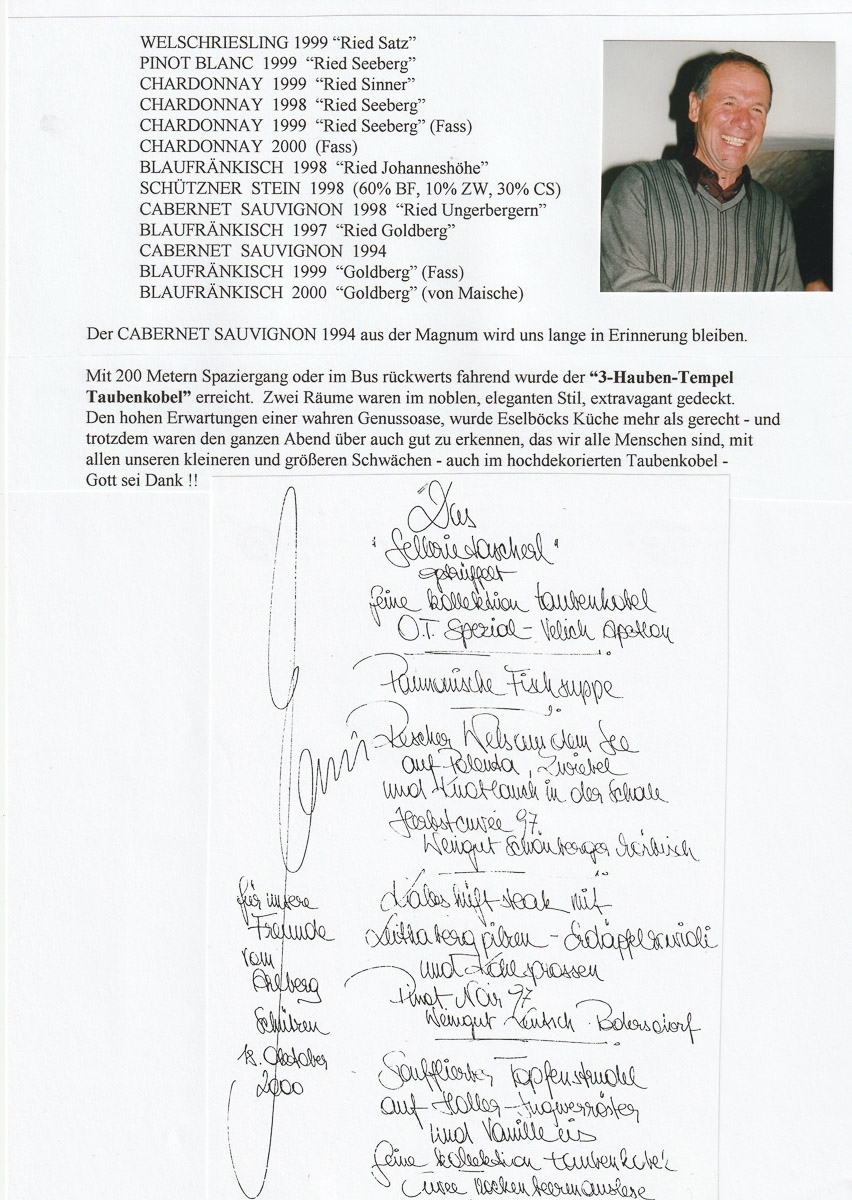 WELSCHRIESLING 1999 “Ried Satz”
PINOT BLANC 1999 “Ried Seeberg”
CHARDONNAY 1999 “Ried Sinner”
CHARDONNAY 1998 “Ried Seeberg”
CHARDONNAY 1999 “Ried Seeberg” (Fass)
CHARDONNAY 2000 (Fass)
BLAUFRÄNKISCH 1998 “Ried Johanneshöhe”
SCHÜTZNER STEIN 1998 (60% BF, 10% ZW, 30% CS)
CABERNET SAUVIGNON 1998 “Ried Ungerbergern”
BLAUFRÄNKISCH 1997 “Ried Goldberg”
CABERNET SAUVIGNON 1994
BLAUFRÄNKISCH 1999 “Goldberg” (Fass)
BLAUFRÄNKISCH 2000 “Goldberg” (von Maische)
Der CABERNET SAUVIGNON 1994 aus der Magnum wird uns lange in Erinnerung bleiben.
Mit 200 Metern Spaziergang oder im Bus rückwerts fahrend wurde der “3-Hauben-Tempel
Taubenkobel” erreicht. Zwei Räume waren im noblen, eleganten Stil, extravagant gedeckt.
Den hohen Erwartungen einer wahren Genussoase, wurde Eselböcks Küche mehr als gerecht - und
trotzdem waren den ganzen Abend über auch gut zu erkennen, das wir alle Menschen sind, mit
allen unseren kleineren und größeren Schwächen - auch im hochdekorierten Taubenkobel -
Gott sei Dank !!
Das
"Sellerietascherl"
getrüffelt
feine kollektion taubenkobel
O.T. Spezial - Velich Apetlon
Pannonische Fischsuppe
Rescher Wels aus dem See
auf Polenta, Zwiebel
und Knoblauch in der Schale
Herbstcuvée 97
Weingut Schönberger Mörbisch
Kalbshüftsteak mit
Leithabergpilzen - Erdäpfelravioli
und Kohlsprossen
Pinot Noir 97
Weingut Podersdorf
Soufflierter Topfenstrudel
auf Holler-Ingwerröster
und Vanilleeis
feine kollektion taubenkobel
Cuvée Trockenbeerenauslese
Menü
für unsere
Freunde
vom
Schützen
18. Oktober
2000